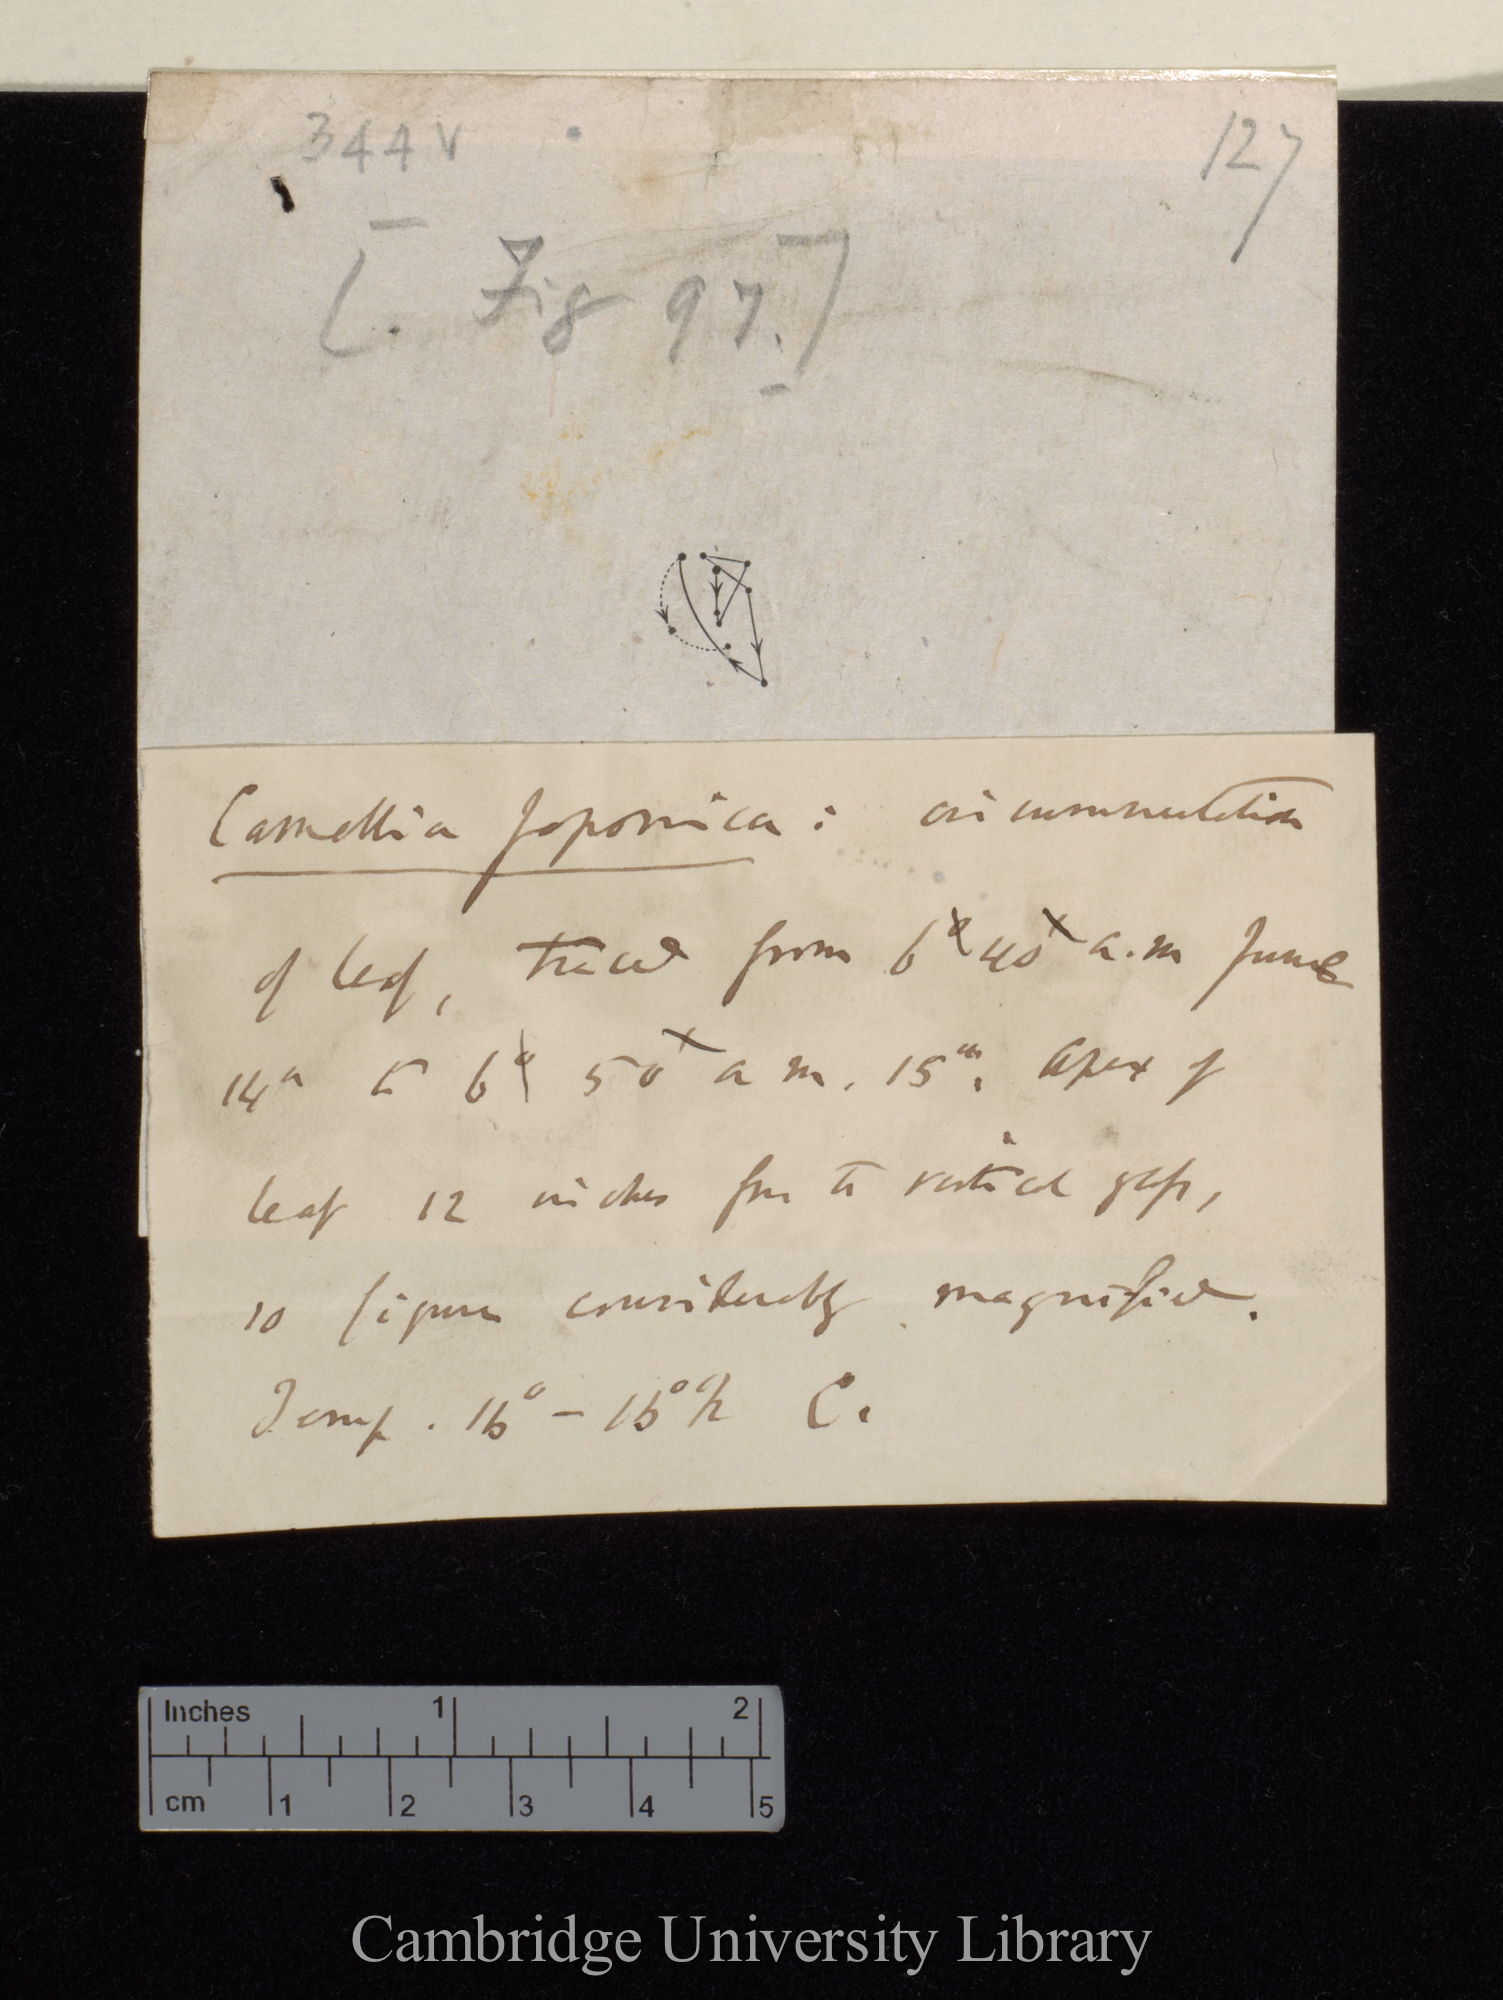 344v
127
[. Fig 97.]
Camellia Japonica: circumnutation
of leaf, traced from 6° 40' a.m June
14th to 6° 50' a m. 15th. Apex of
leaf 12 inches from the vertical glass,
so figure considerably magnified.
Temp. 16° - 16°½ C.
Inches 1 2
cm 1 2 3 4 5
Cambridge University Library